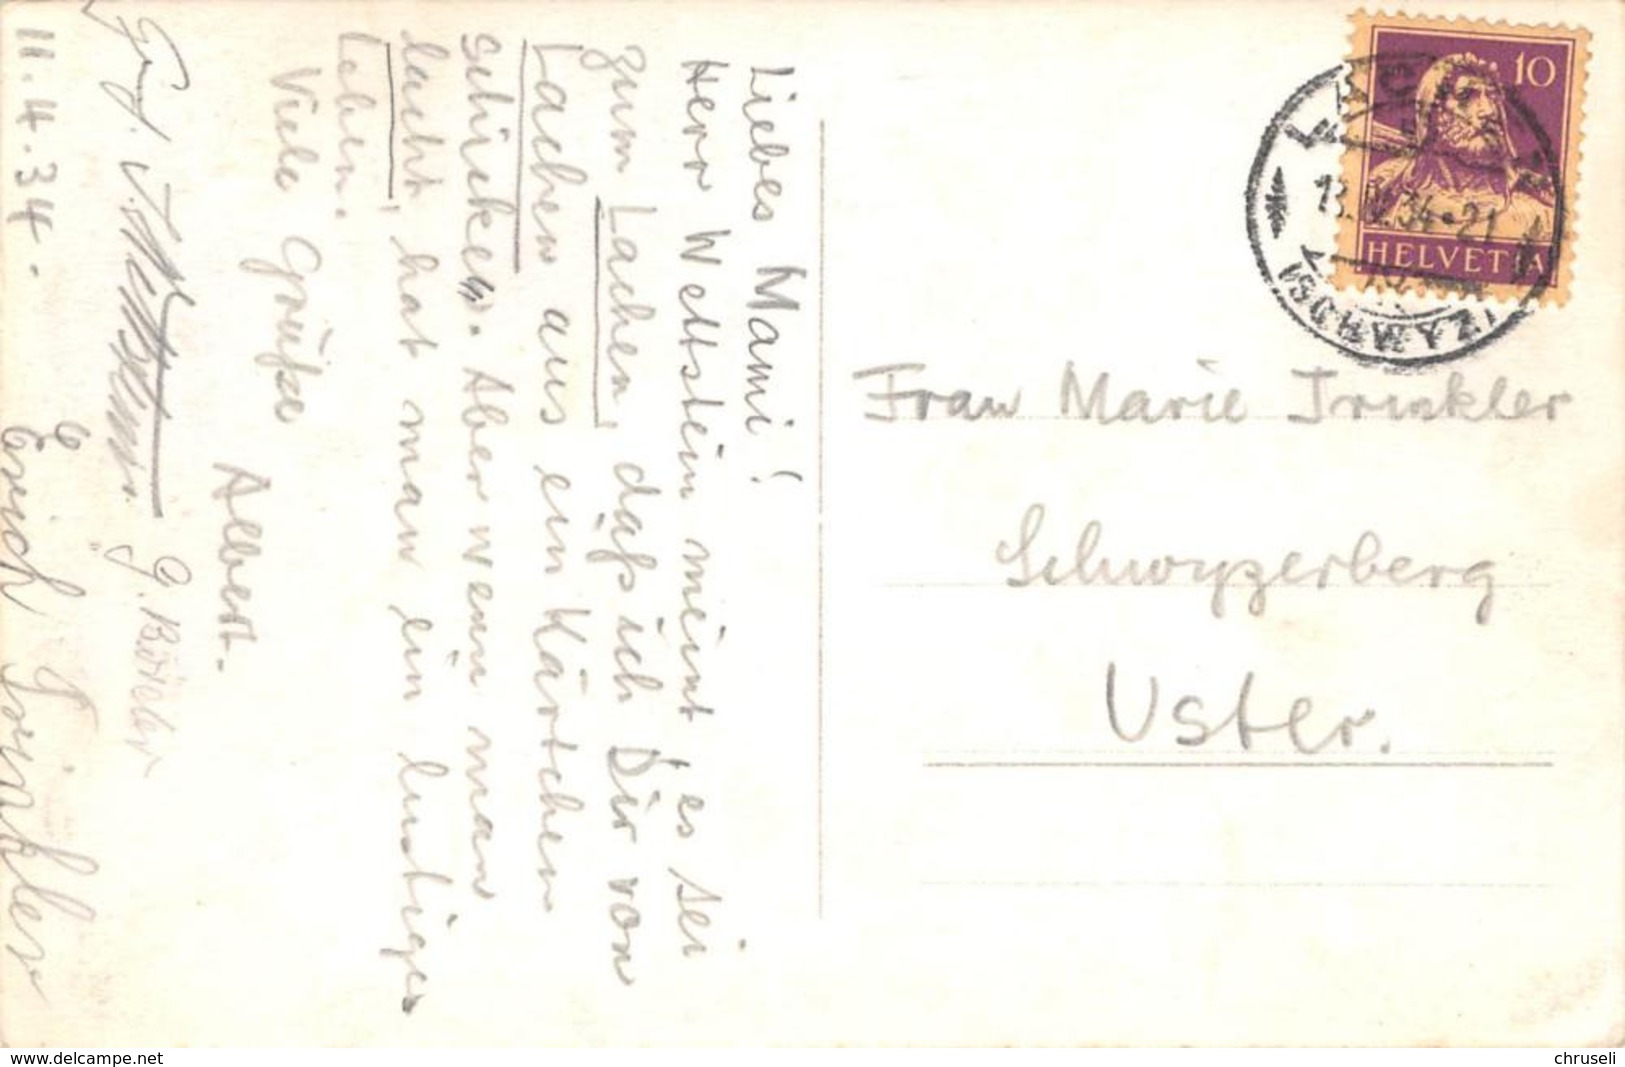 Liebes Mami!
Herr Wettstein meint, es sei
zum Lachen, daß ich Dir von
Lachen aus ein Kärtchen
schicken. Aber wenn man
lacht, hat man ein lustiges
Leben.
Viele Grüße
Albert.
J. Wettstein
Erich Trinkler
11.4.34.
10
HELVETIA
LACHEN
34-21
(SCHWYZ)
Frau Marie Trinkler
Schwyzerberg
Uster.
www.delcampe.net
chruseli